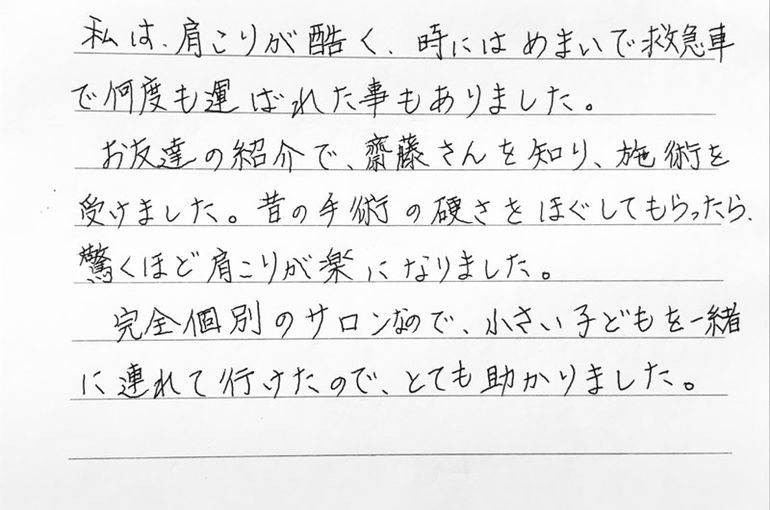 私は、肩こりが酷く、時にはめまいで救急車
で何度も運ばれた事もありました。
お友達の紹介で、齋藤さんを知り、施術を
受けました。昔の手術の硬さをほぐしてもらったら、
驚くほど肩こりが楽になりました。
完全個別のサロンなので、小さい子どもを一緒
に連れて行けたので、とても助かりました。